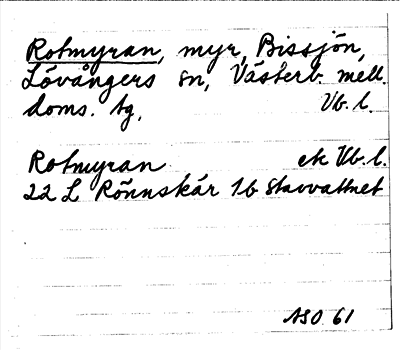 Rotmyran, myr, Bissjön,
Lövångers sn, Västerb. mell.
doms. tg, Vb. l.
Rotmyran ek Vb. l.
22 L Rönnskär 1b Stavvattnet
ASO 61